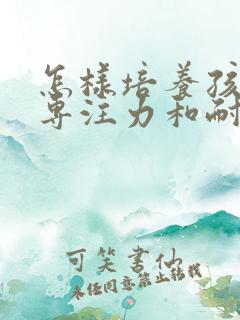 怎样培养孩
专注力和耐
可笑书仙
未经同意禁止转载